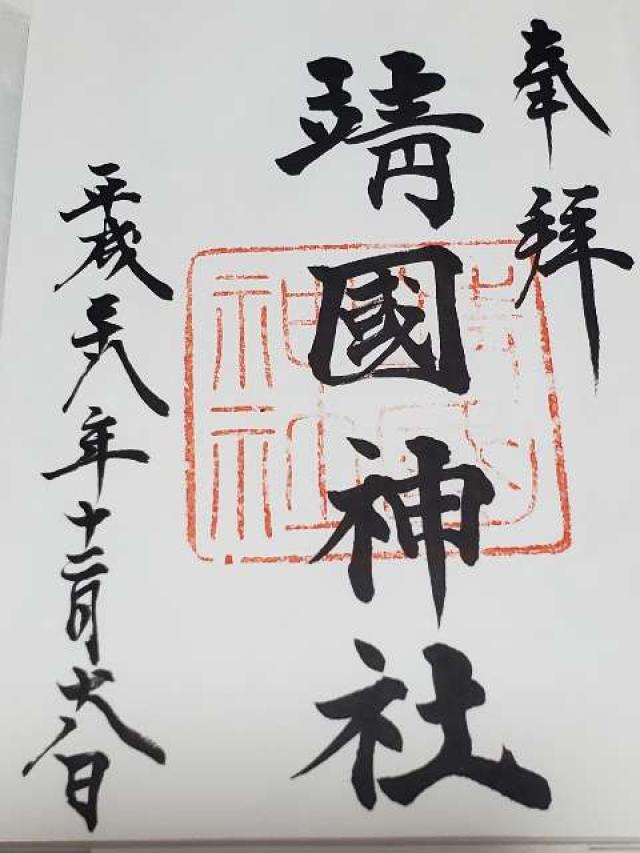 奉拝
靖國神社
平成二十八年十二月十八日
靖國
神社